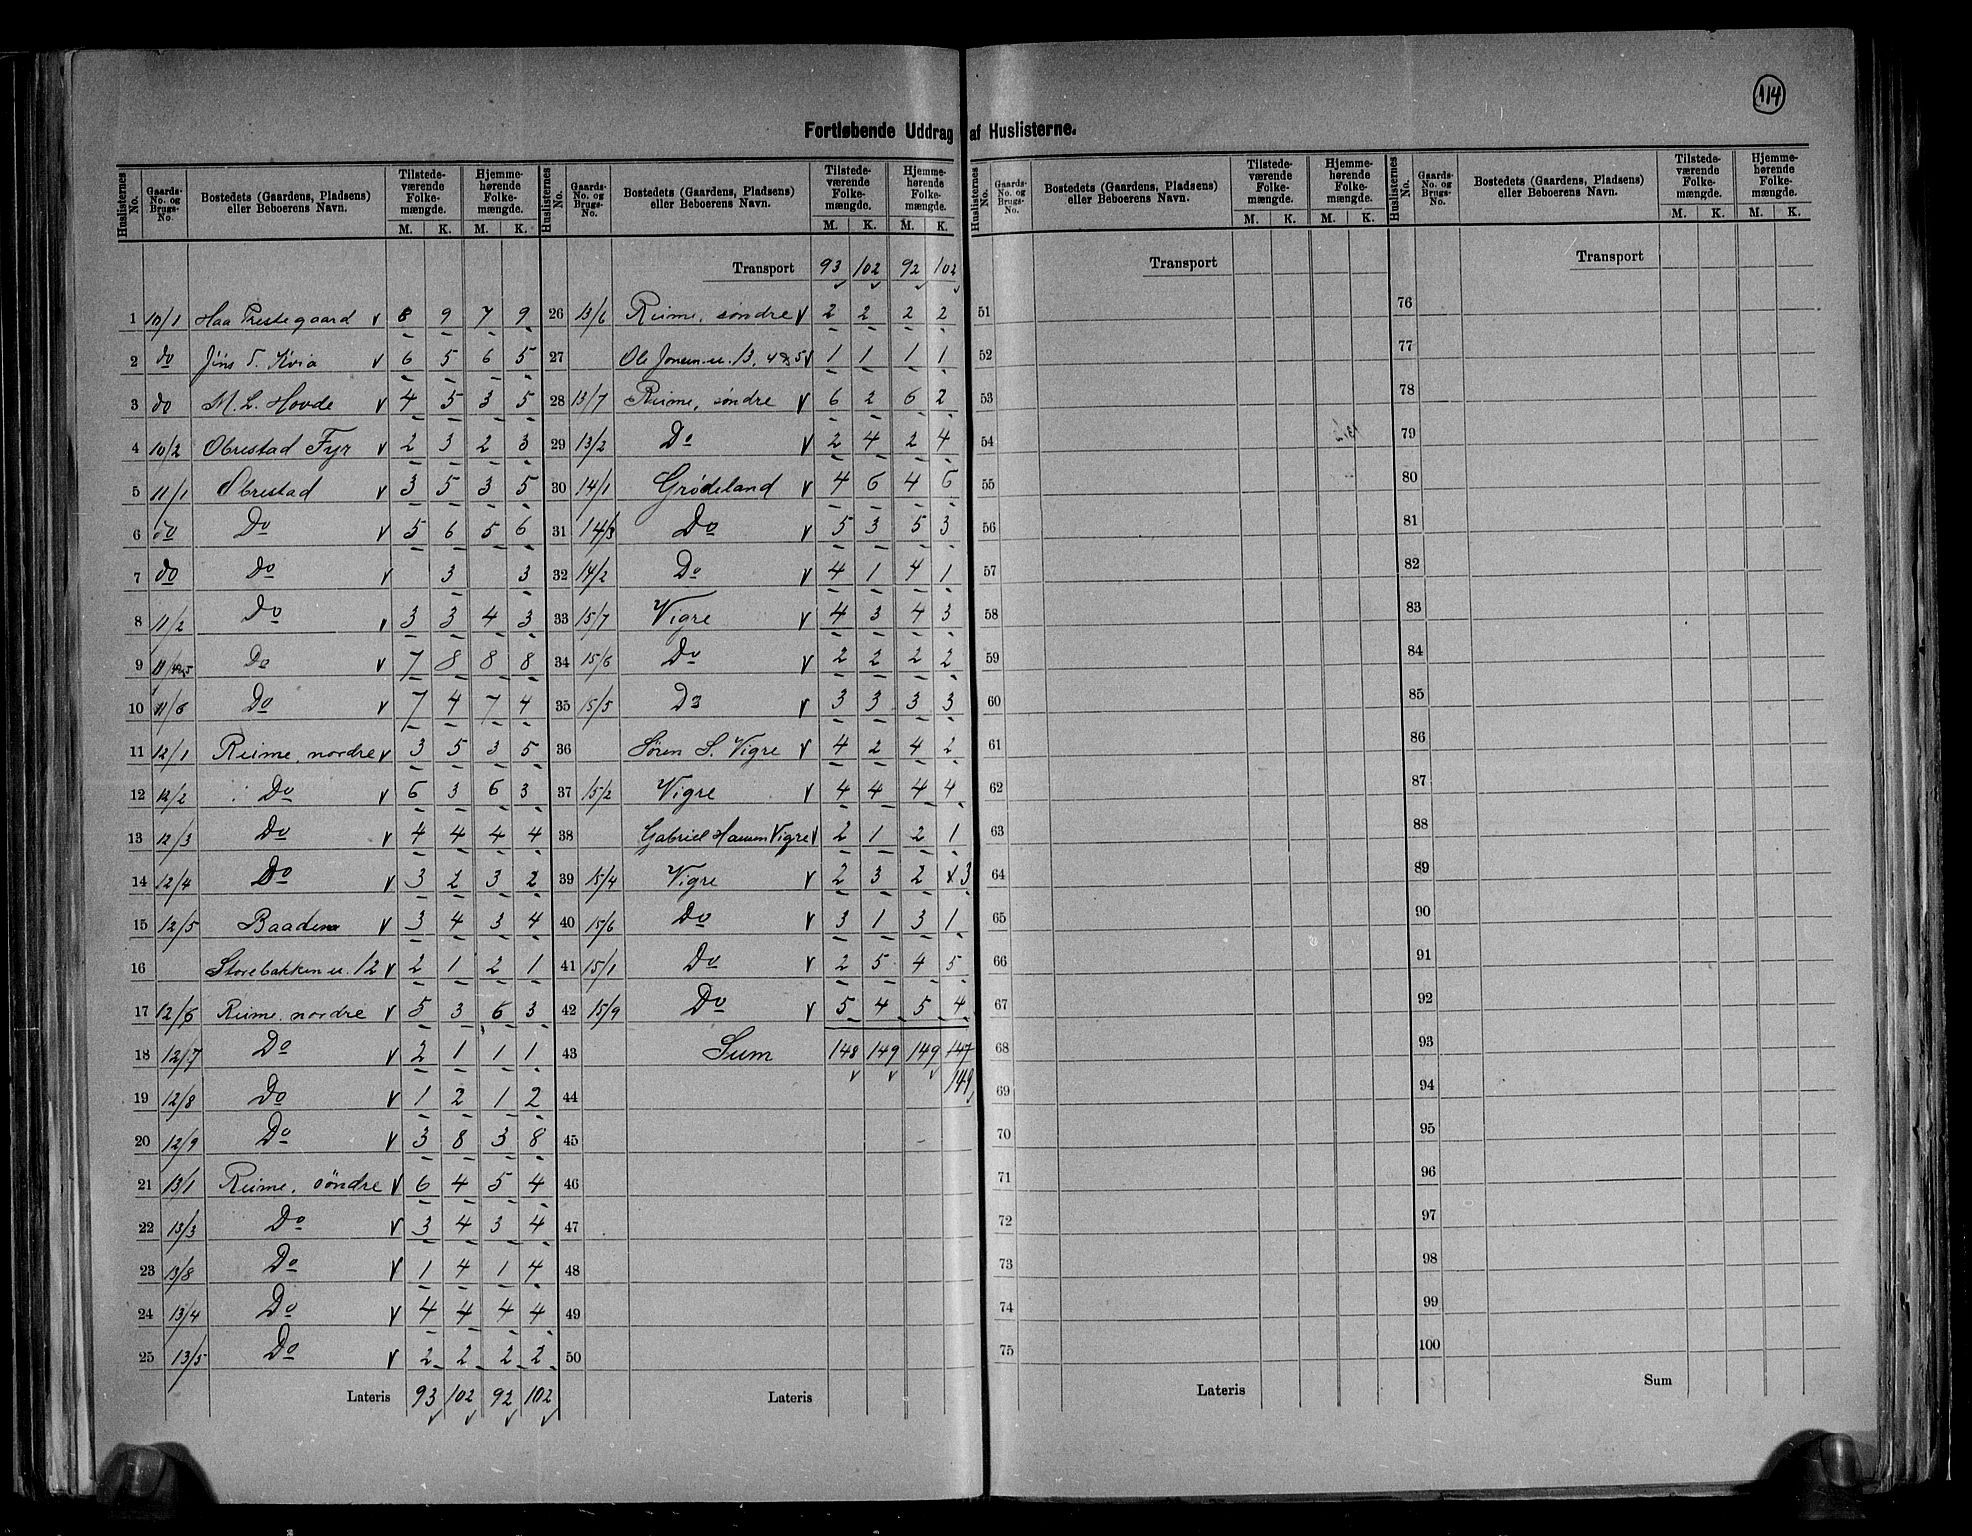 114
Fortløbende Uddrag af Huslisterne.
Huslisternes No. Gaards-No. og Brugs-No. Bostedets (Gaardens, Pladsen) eller Beboerens Navn. Tilstedeværende Folkemængde. M. K. Hjemmehørende Folkemængde. M. K.
1 10/1 Haa Prestegaard v 8 9 7 9
2 do Jøns T. Kvia v 6 5 6 5
3 do M. L. Hovde v 4 5 3 5
4 10/2 Obrestad Fyr v 2 3 2 3
5 11/1 Obrestad v 3 5 3 5
6 do Do v 5 6 5 6
7 do Do v 3 3
8 11/2 Do v 3 3 4 3
9 Do v 7 8 8 8
10 11/6 Do v 7 4 7 4
11 12/1 Reime, nordre v 3 5 3 5
12 12/2 Do v 6 3 6 3
13 12/3 Do v 4 4 4 4
14 12/4 Do v 3 2 3 2
15 12/5 Baadene v 3 4 3 4
16 Storebakken u. 12 v 2 1 2 1
17 12/6 Reime, nordre v 5 3 6 3
18 12/7 Do v 2 1 1 1
19 12/8 Do v 1 2 1 2
20 12/9 Do v 3 8 3 8
21 13/1 Reime, søndre v 6 4 5 4
22 13/3 Do v 3 4 3 4
23 13/8 Do v 1 4 1 4
24 13/4 Do v 4 4 4 4
25 13/5 Do v 2 2 2 2
Lateris 93 102 92 102
Huslisternes No. Gaards-No. og Brugs-No. Bostedets (Gaardens, Pladsen) eller Beboerens Navn. Tilstedeværende Folkemængde. M. K. Hjemmehørende Folkemængde. M. K.
Transport 93 102 92 102
26 13/6 Reime, søndre v 2 2 2 2
27 Ole Jonsen u. 13, 4 & 5 v 1 1 1 1
28 13/7 Reime, søndre v 6 2 6 2
29 13/2 Do v 2 4 2 4
30 14/1 Grødeland v 4 6 4 6
31 14/3 Do v 5 3 5 3
32 14/2 Do v 4 1 4 1
33 15/7 Vigre v 4 3 4 3
34 15/6 Do v 2 2 2 2
35 15/5 Do v 3 3 3 3
36 Søren S. Vigre v 4 2 4 2
37 15/2 Vigre v 4 4 4 4
38 Gabriel Hansen Vigre v 2 1 2 1
39 15/4 Vigre v 2 3 2 3
40 15/6 Do v 3 1 3 1
41 15/1 Do v 2 5 4 5
42 15/9 Do v 5 4 5 4
43 Sum 148 149 149 147
149
44
45
46
47
48
49
50
Lateris
Huslisternes No. Gaards-No. og Brugs-No. Bostedets (Gaardens, Pladsen) eller Beboerens Navn. Tilstedeværende Folkemængde. M. K. Hjemmehørende Folkemængde. M. K.
Transport
51
52
53
54
55
56
57
58
59
60
61
62
63
64
65
66
67
68
69
70
71
72
73
74
75
Lateris
Huslisternes No. Gaards-No. og Brugs-No. Bostedets (Gaardens, Pladsen) eller Beboerens Navn. Tilstedeværende Folkemængde. M. K. Hjemmehørende Folkemængde. M. K.
Transport
76
77
78
79
80
81
82
83
84
85
86
87
88
89
90
91
92
93
94
95
96
97
98
99
100
Sum